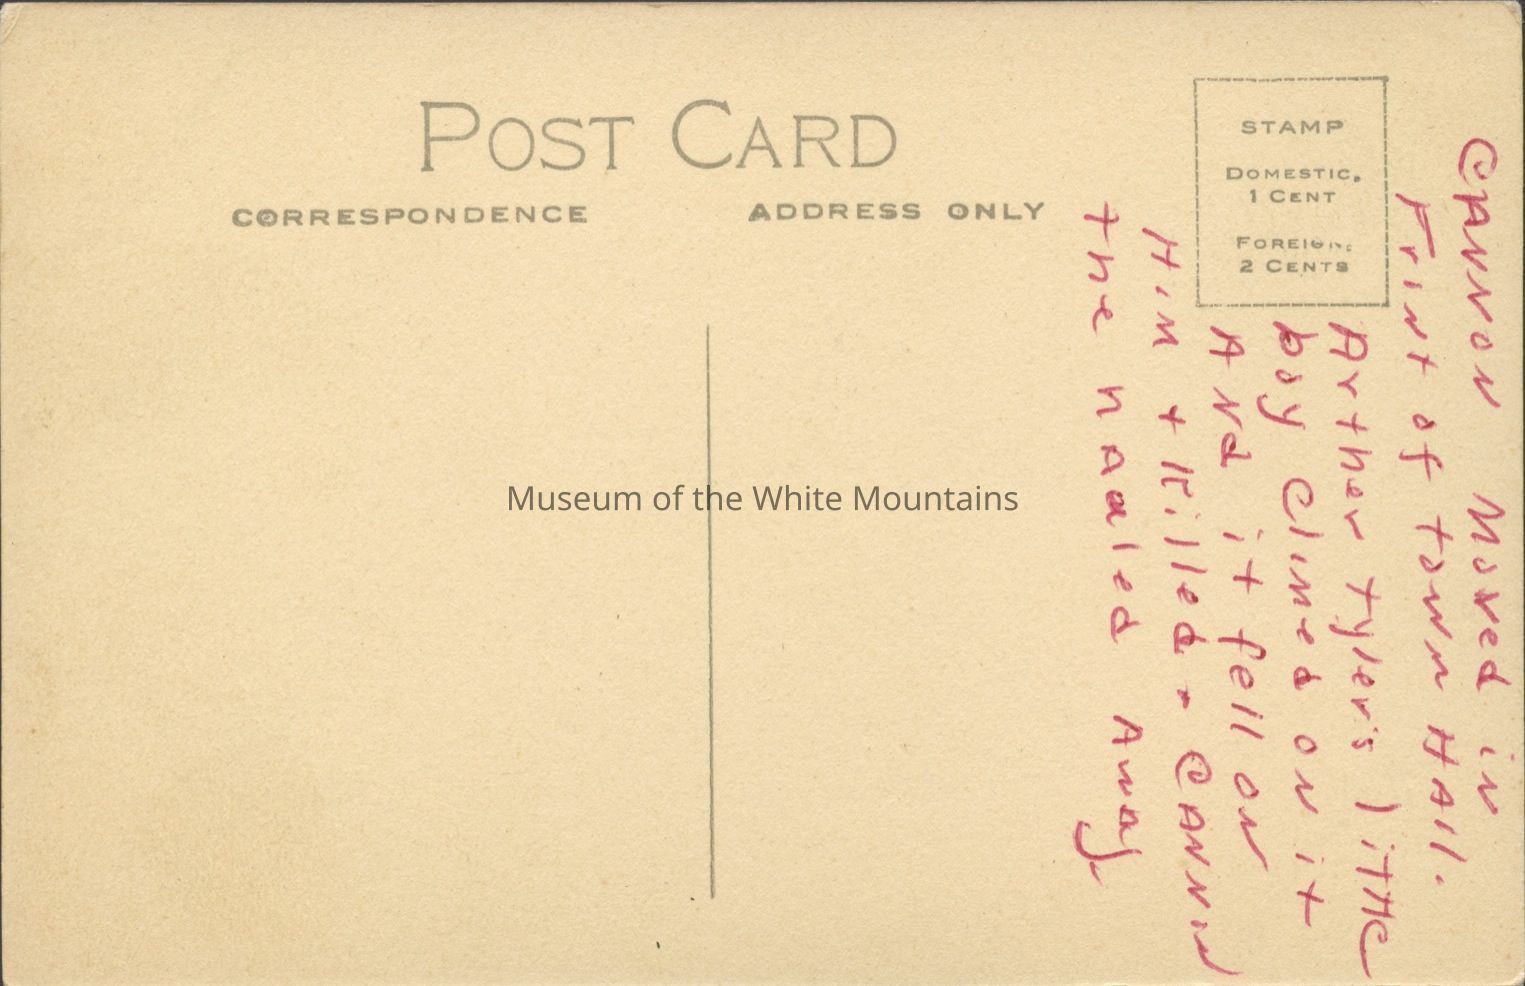 POST CARD
CORRESPONDENCE
ADDRESS ONLY
STAMP
DOMESTIC,
1 CENT
FOREIGN,
2 CENTS
CANNON Moved in
Frint of town HAll.
Arther tyler's litTle
boy Climed on it
And it fell on
Him + Killed. CANNIN
the haaled Away
Museum of the White Mountains